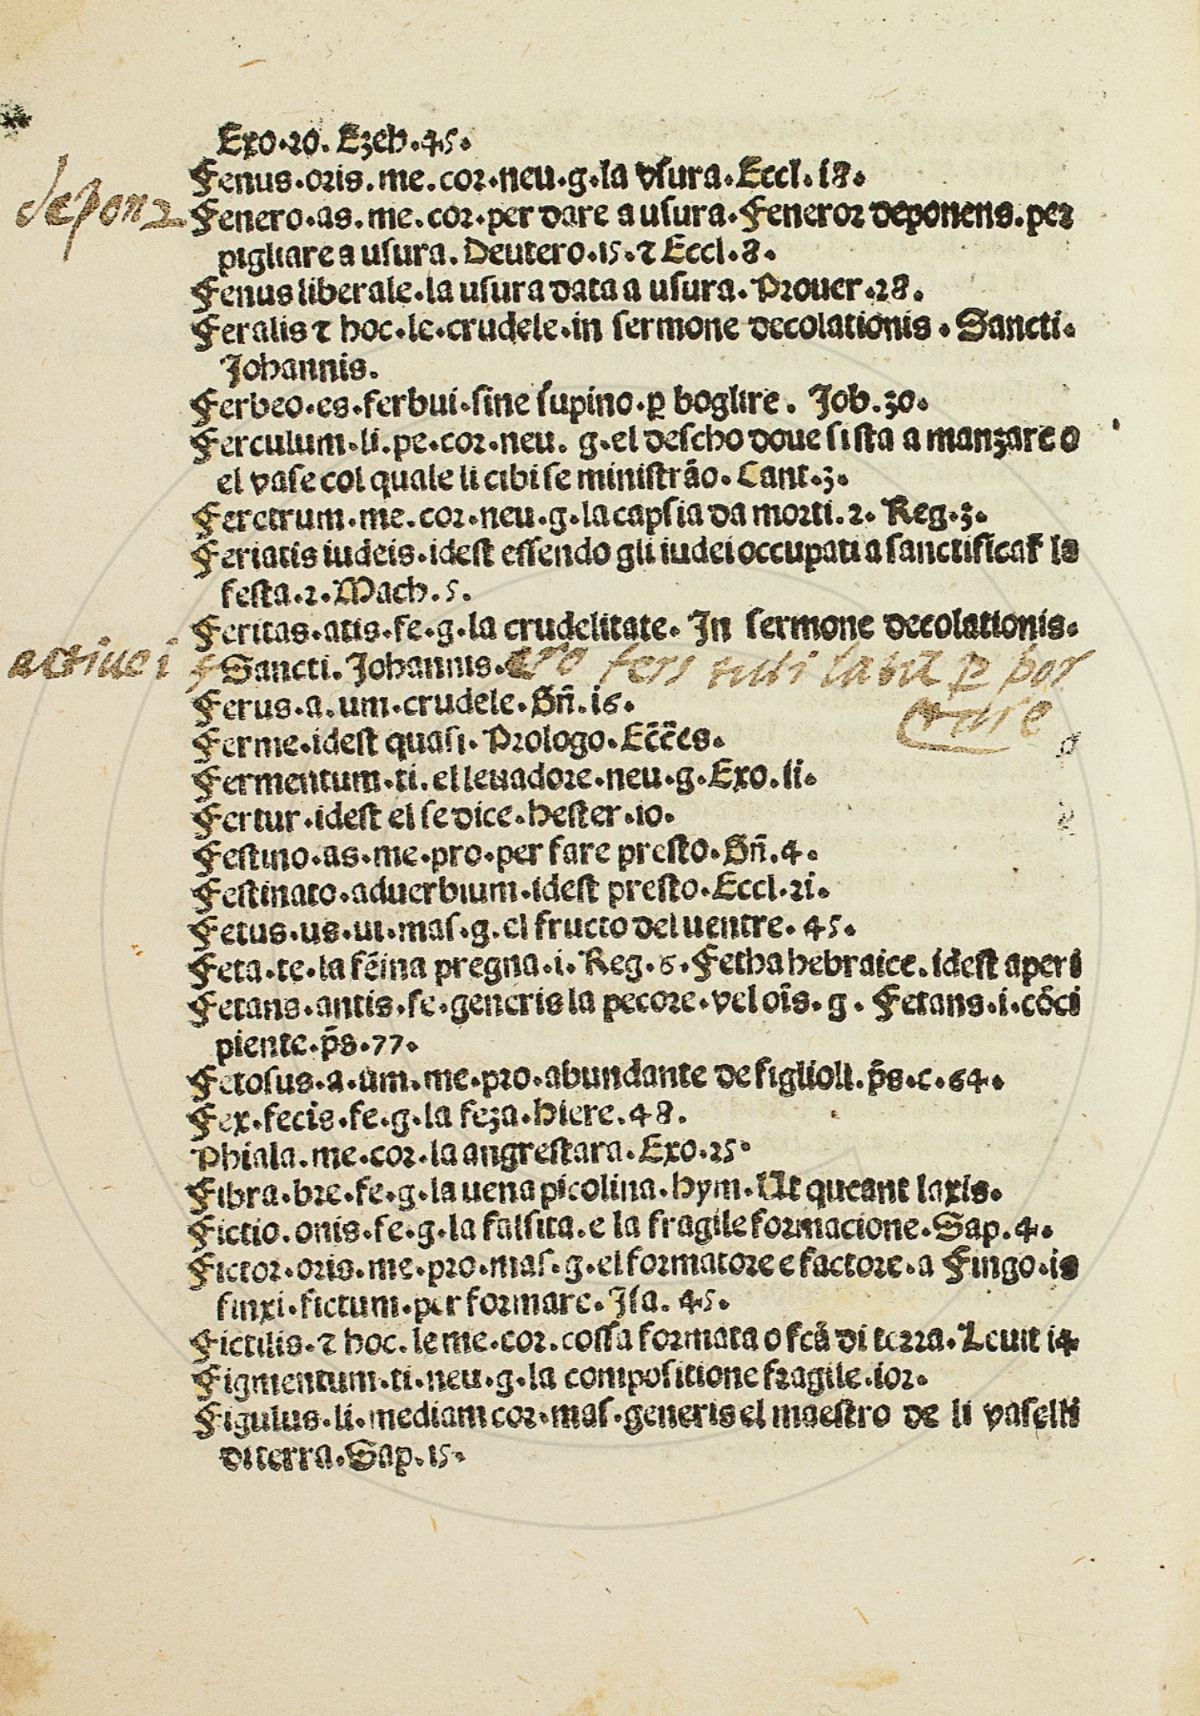 Exo.20. Ezeh.45.
Fenus.oris.me.cor.neu.g.la vsura.Eccl.18.
depon2
Fenero.as.me.cor.per dare a usura.Feneror deponens.per
pigliare a usura. Deutero.15.⁊ Eccl.8.
Fenus liberale.la usura data a usura. Prouer.28.
Feralis ⁊ hoc.le.crudele.in sermone decolationis. Sancti.
Johannis.
Ferbeo.es.ferbui.sine supino.ꝑ boglire. Job.30.
Ferculum.li.pe.cor.neu. g.el descho doue si sta a manzare o
el vase col quale li cibi se ministrāo. Cant.3.
Feretrum.me.cor.neu.g.la capsia da morti.2. Reg.3.
Feriatis iudeis.idest essendo gli iudei occupati a sanctificar̄ le
festa.2.Mach.5.
Feritas.atis.fe.g.la crudelitate. In sermone decolationis.
actiuei
Sancti. Johannis. fero fers tuli latū ꝑ por
tare
Ferus.a.um.crudele.Gn̄.16.
Ferme.idest quasi.Prologo.Ec̄c̄es.
Fermentum.ti.el leuadore.neu.g.Exo.li.
Fertur.idest el se dice.hester.10.
Festino.as.me.pro.per fare presto.Gn̄.4.
Festinato.aduerbium.idest presto.Eccl.21.
Fetus.us.ui.mas.g.el fructo del uentre.45.
Feta.te.la fēina pregna.i.Reg.6.Fetha hebraice.idest aperi
Fetans.antis.fe.generis la pecore.vel oīs.g. Fetans.i.cōci
piente.p̄s.77.
Fetosus.a.um.me.pro.abundante de figlioli.p̄s.c.64.
Fex.fecis.fe.g.la feza.hiere.48.
Phiala.me.cor.la angrestara.Exo.25.
Fibra.bre.fe.g.la uena picolina.hym.Ut queant laxis.
Fictio.onis.fe.g.la falsita.e la fragile formacione.Sap.4.
Fictor.oris.me.pro.mas.g.el formatore e factore.a Fingo.is
finxi.fictum.per formare.Isa.45.
Fictilis.⁊ hoc.le me.cor.cossa formata o fcā di terra.Leuit 14
Figmentum.ti.neu.g.la compositione fragile.ior.
Figulus.li.mediam cor.mas.generis el maestro de li vaselli
di terra.Sap.15.